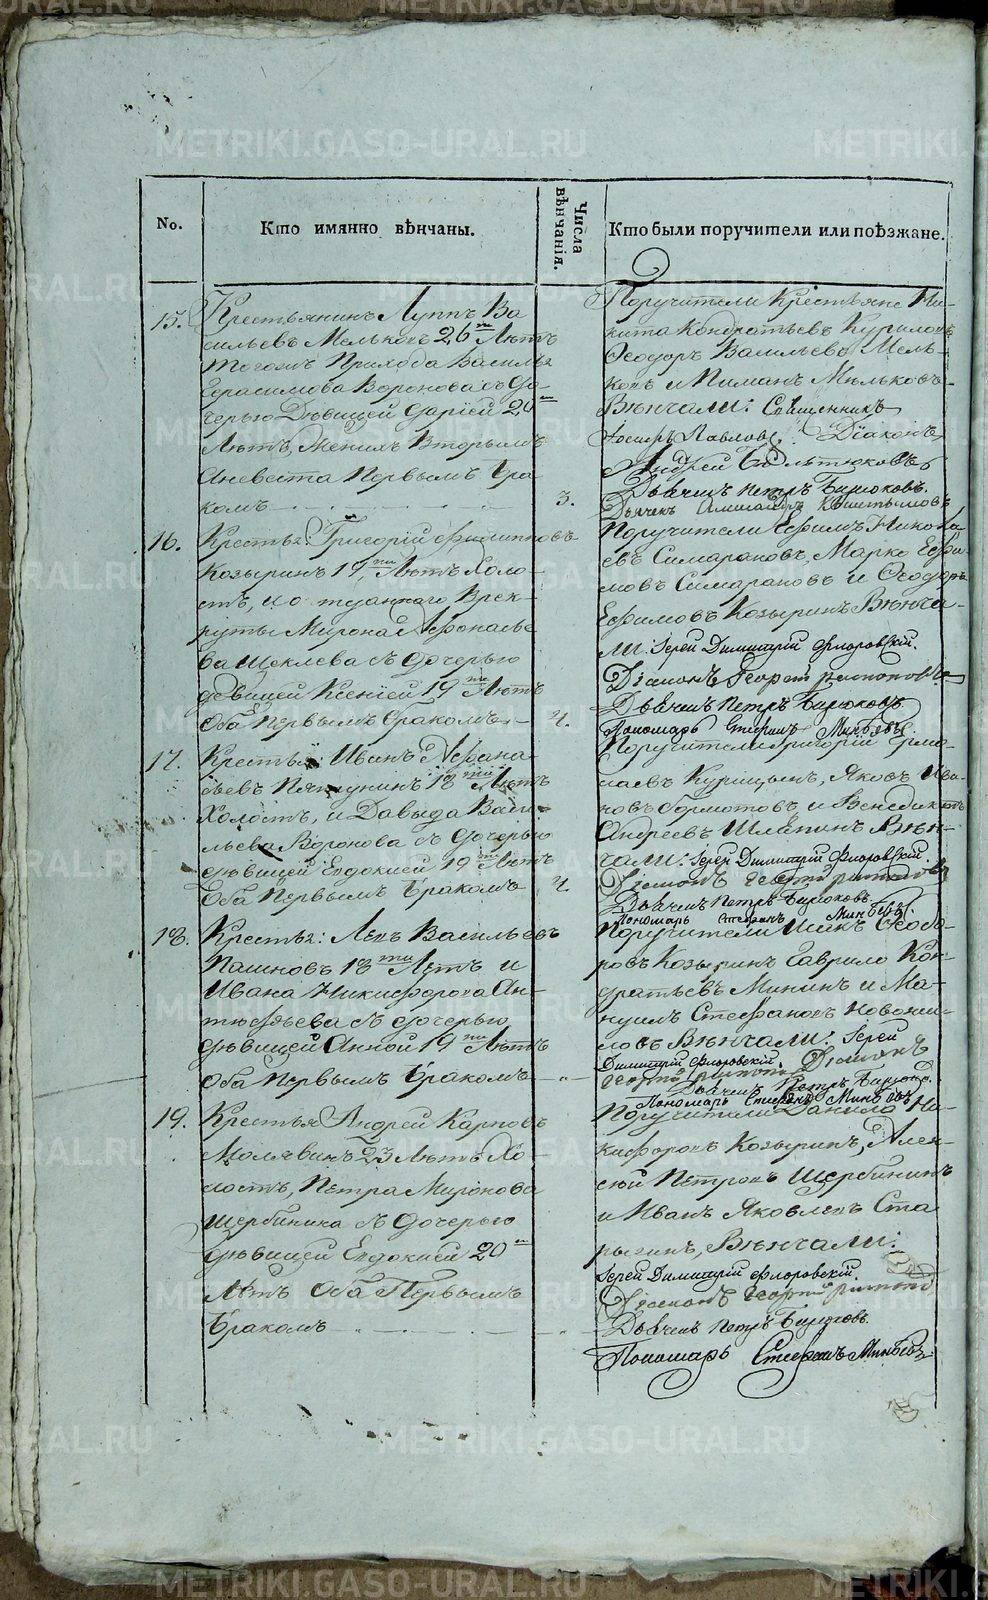 No.
Кто имянно вѣнчаны.
Числа вѣнчанія.
Кто были поручители или поѣзжане.
15. Крестьянинъ Луппъ Ва
сильевъ Мельковъ 26ти Лѣтъ
тогожъ Прихода Василья
Герасимова Воронова съ До-
черью Дѣвицей Дарiей 20ти
Лѣтъ, Женихъ Вторымъ
Аневеста Первымъ Бра
комъ 3.
Поручители Крестьяне Ни-
кита Кондратьевъ Куриловъ
Ѳеодоръ Васильевъ Мель-
ковъ и Пиманъ Мильковъ
Вѣнчали: Священникъ
Іосифъ Павловъ. Дiаконъ
Андрей
Дьячекъ Петръ Бирюковъ.
Дьячекъ
16. Крестья: Григорій Филипповъ
Козыринъ 19ти Лѣтъ Холо-
стъ, и отданнаго Врек-
руты Мирона Афонасье
ва Щеклеева съ Дочерью
девицей Ксенiей 19ти Лѣтъ
Оба Первымъ бракомъ 4.
Поручители Ефимъ Никола
евъ Симараковъ, Марко Ефи-
мовъ Симараковъ и Ѳеодоръ
Ефимовъ Козыринъ Вѣнча-
ли: Іерей Димитрій Флоровскій.
Дiаконъ Георгій
Дьячекъ Петръ Бирюковъ
Пономарь Стефанъ
17. Крестья: Иванъ Афана
сьевъ 18ти Лѣтъ
Холостъ, и Давыда Васи-
льева Воронова съ Дочерью
дѣвицей Евдокией 19ти Лѣтъ
Оба Первымъ бракомъ 4.
Поручители Григорій Ермо-
лаевъ Курицынъ, Яковъ Ива-
новъ и Венедиктъ
Андреевъ Шляпинъ Вѣн-
чали: Іерей Димитрій Флоровскій.
Дiаконъ Георгій
Дьячекъ Петръ Бирюковъ.
Пономарь Стефанъ
18. Крестья: Левъ Васильевъ
Пашновъ 18ти Лѣтъ и
Ивана Никифорова Ан-
тюфѣева съ Дочерью
дѣвицей Анной 19ти Лѣтъ
Оба Первымъ Бракомъ - " -
Поручители Ѳеодо-
ровъ Козыринъ Гаврило Кон-
дратьевъ Мининъ и Ма-
нуилъ Стефановъ Новожи-
ловъ Вѣнчали: Іерей
Димитрій Флоровскій. Дiаконъ
Георгій
Дьячекъ Петръ Бирюко.
Пономарь Стефанъ
19. Крестья Андрей Карповъ
Молявинъ 23 Лѣтъ Хо-
лостъ, Петра Миронова
Щербинина съ Дочерью
дѣвицей Евдокией 20ти
Лѣтъ Оба Первымъ
Бракомъ - " -
Поручители Данила Ни-
кифоровъ Козыринъ, Алек-
сѣй Петровъ Щербининъ
и Иванъ Яковлевъ Ста
рыгинъ, Вѣнчали:
Іерей Димитрій Флоровскій.
Дiаконъ Георгій
Дьячекъ Петръ Бирюковъ.
Пономарь Стефанъ
METRIKI.GASO-URAL.RU